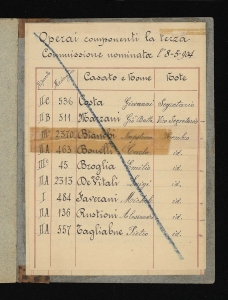 Operai componenti la terza
Commissione nominata l' 8-5-904
Casato e Nome Note
II C 536 Costa Giovanni Segretario
II B 511 Mazzani Gio Batta Vice Segretario
2310 Bianchi
II A 463 Bonelli Carlo id.
III C 45 Broglia Emilio id.
II A 2313 De Vitali Luigi id.
I 484 Faverani Michele id.
II A 136 Rustioni Alessandro id.
II A 557 Tagliabue Pietro id.